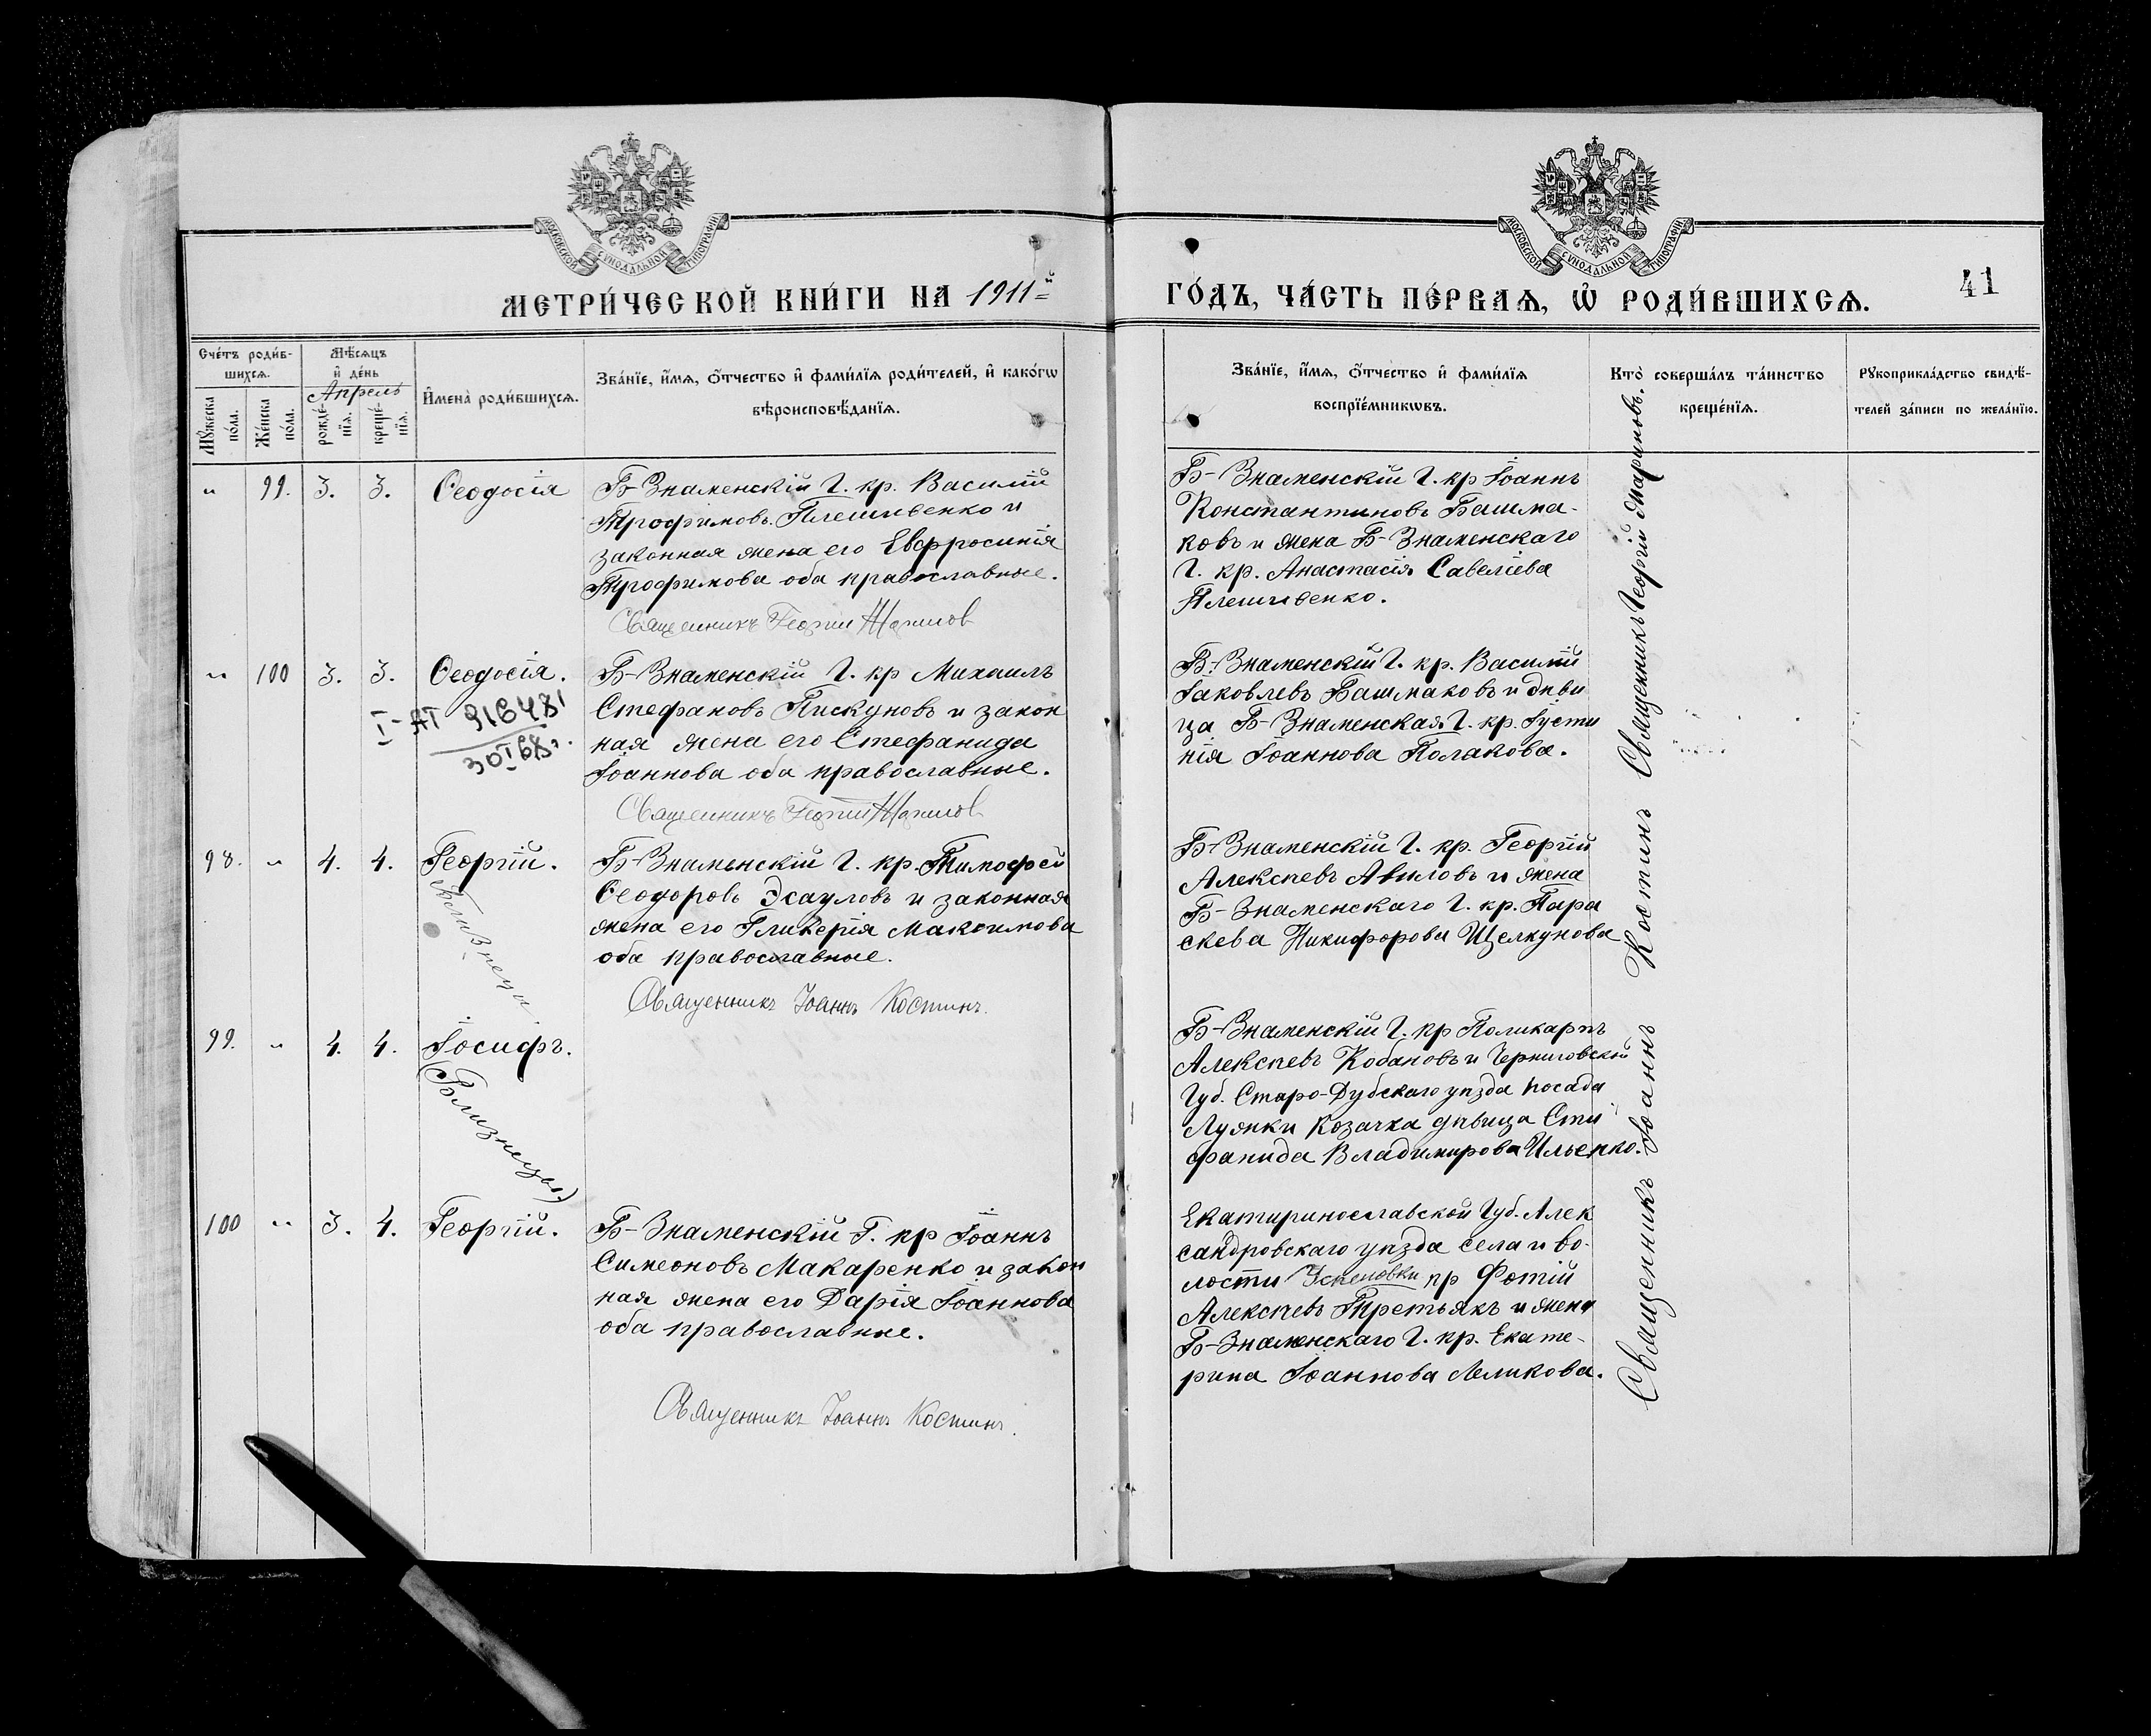 МОСКОВСКОЙ СУНОДАЛЬНОЙ ТИПОГРАФІИ
МОСКОВСКОЙ СУНОДАЛЬНОЙ ТИПОГРАФІИ
МЕТРИ́ЧЕСКОЙ КНИ́ГИ НА 1911й
ГО́ДЪ, ЧА́СТЬ ПЕ́РВАѦ, Ѽ РОДИ́ВШИХСѦ.
41
Сче́тъ роди́в-
шихсѧ.
Мꙋ́жеска по́ла.
Же́нска по́ла.
Мѣ́сѧцъ
и҆ де́нь
Апрель
рожде́-
нїѧ.
креще́-
нїѧ.
И҆мена̀ роди́вшихсѧ.
Зва́нїе, и҆́мѧ, ѻ҆́тчество и҆ фами́лїѧ роди́телей, и҆ како́гѡ
вѣроисповѣ́данїѧ.
Зва́нїе, и҆́мѧ, ѻ҆́тчество и҆ фами́лїѧ
воспрїе́мникѡвъ.
Кто̀ соверша́лъ та́инство
креще́нїѧ.
Рꙋкоприкла́дство свидѣ́-
телей за́писи по жела́нїю.
„ 99. 3. 3. Ѳеодосія
Б-Знаменскій Г. кр. Василій
Трофимовъ Плешивенко и
законная жена его Евфросинія
Трофимова оба православные.
Священникъ Георгій Маринов
Б-Знаменскій Г. кр Іоаннъ
Константиновъ Башма-
ковъ и жена Б-Знаменскаго
Г. кр. Анастасія Савеліева
Плешивенко.
„ 100 3. 3. Ѳеодосія.
I-АТ 316481
30 I 68г.
Б-Знаменскій Г. кр Михаилъ
Стефановъ Пискуновъ и закон
ная жена его Стефанида
Іоаннова оба православные.
Священникъ Георгій Маринов
Б-Знаменскій Г. кр. Василій
Іаковлевъ Башмаковъ и дѣви
ца Б-Знаменская Г. кр. Іусти
нія Іоаннова Полакова.
98. „ 4. 4. Георгій.
Близнецы
Б-Знаменскій Г. кр. Тимофей
Ѳеодоровъ Эсауловъ и законная
жена его Гликерія Максимова
оба православные.
Священникъ Іоаннъ Костинъ.
Б-Знаменскій Г. кр. Георгій
Алексѣевъ Авиловъ и жена
Б-Знаменскаго Г. кр. Пара
скева Никифорова Щелкунова
99. „ 4. 4. Іосифъ.
(Близнецы.)
Б-Знаменскій Г. кр Поликарпъ
Алексѣевъ Кобановъ и Черниговской
Губ. Старо-Дубскаго уѣзда посада
Лужки козачка дѣвица Сти
фанида Владимирова Ильенко.
100 „ 3. 4. Георгій.
Б-Знаменскій Г. кр Іоаннъ
Симеоновъ Макаренко и закон
ная жена его Дарія Іоаннова
оба православные.
Священникъ Іоаннъ Костинъ.
Екатиринославской Губ. Алек
сандровскаго уѣзда села и во-
лости Успеновки кр Фотій
Алексѣевъ Третьякъ и жена
Б-Знаменскаго Г. кр. Екате-
рина Іоаннова Леликова.
Священникъ Георгій Мариновъ.
Священникъ Іоаннъ Костинъ